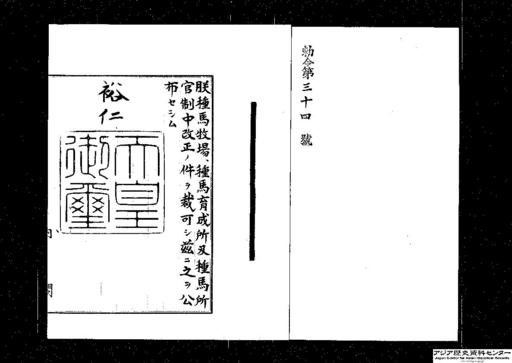 勅令第三十四號
朕種馬牧場、種馬育成所及種馬所
官制中改正ノ件ヲ裁可シ茲ニ之ヲ公
布セシム
裕仁
天皇
御璽
内閣
アジア歴史資料センター
Japan Center for Asian Historical Records